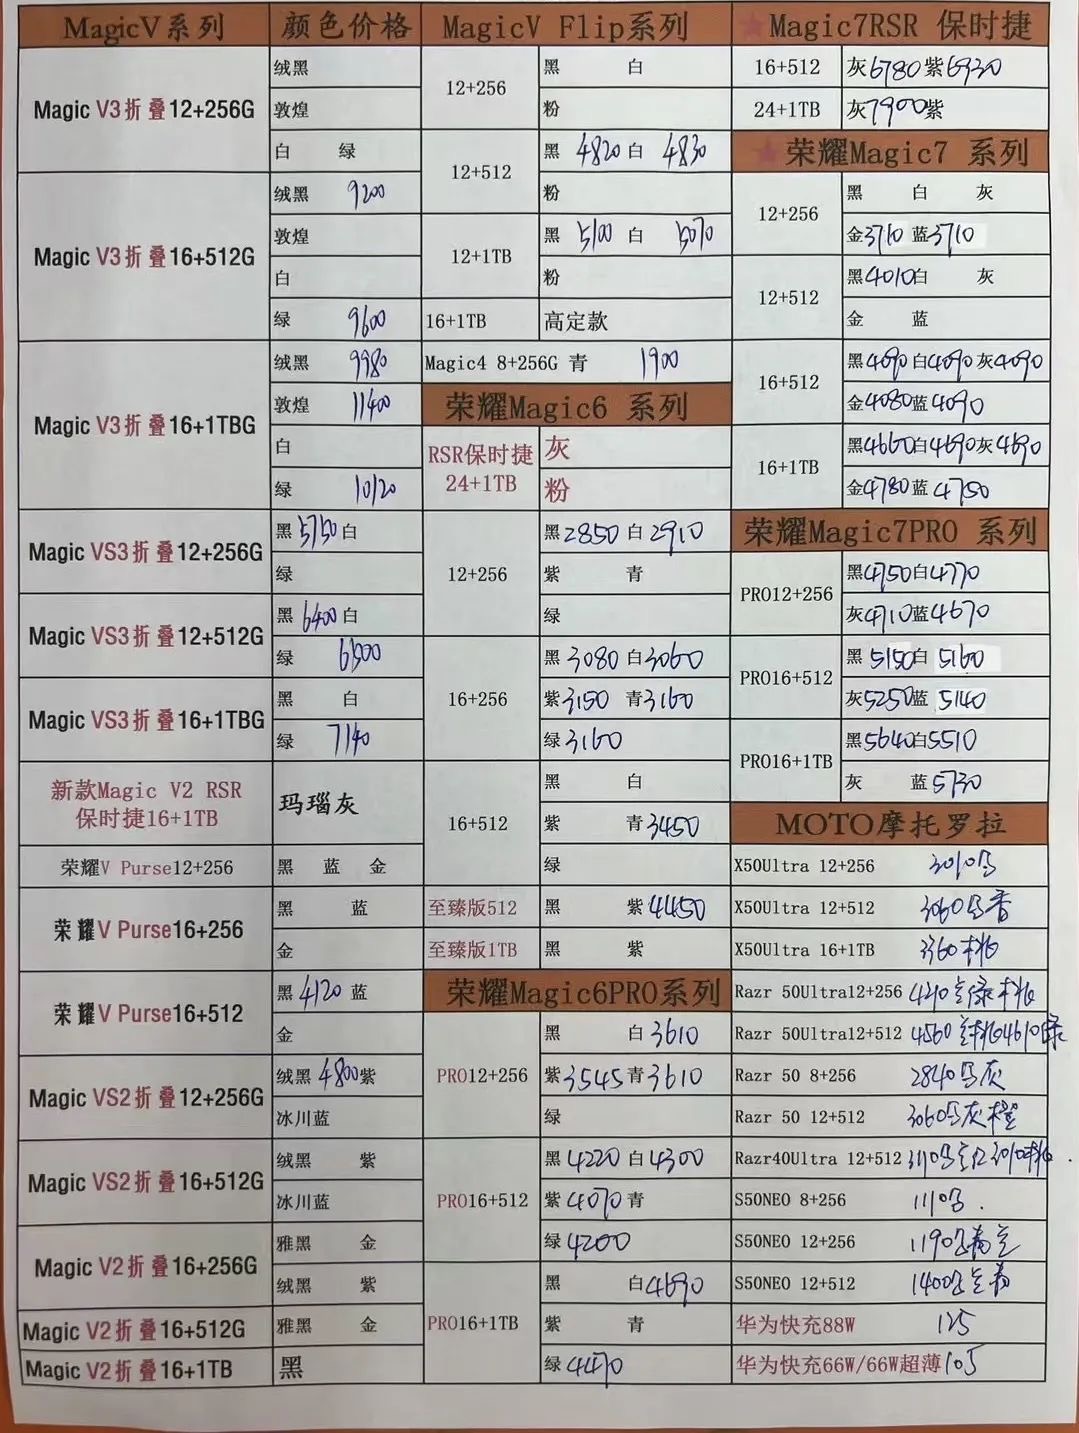 MagicV系列 颜色价格
Magic V3折叠12+256G
绒黑
敦煌
白 绿
Magic V3折叠16+512G
绒黑 9200
敦煌
白
绿 9600
Magic V3折叠16+1TBG
绒黑 9980
敦煌 11400
白
绿 10120
Magic VS3折叠12+256G
黑 5750 白
绿
Magic VS3折叠12+512G
黑 6400 白
绿
Magic VS3折叠16+1TBG
黑 白
绿 7140
新款Magic V2 RSR
保时捷16+1TB
玛瑙灰
荣耀V Purse12+256 黑 蓝 金
荣耀V Purse16+256
黑 蓝
金
荣耀V Purse16+512
黑 4120 蓝
金
Magic VS2折叠12+256G
绒黑 4800 紫
冰川蓝
Magic VS2折叠16+512G
绒黑 紫
冰川蓝
Magic V2折叠16+256G
雅黑 金
绒黑 紫
Magic V2折叠16+512G 雅黑 金
Magic V2折叠16+1TB 黑
MagicV Flip系列
12+256
黑 白
粉
12+512
黑 4820 白 4830
粉
12+1TB
黑 5100 白 5070
粉
16+1TB 高定款
Magic4 8+256G 青 1900
荣耀Magic6 系列
RSR保时捷
24+1TB
灰
粉
12+256
黑2850 白2910
紫 青
绿
16+256
黑3080 白3060
紫3150 青3160
绿3160
16+512
黑 白
紫 青3450
绿
至臻版512 黑 紫4450
至臻版1TB 黑 紫
荣耀Magic6PRO系列
PRO12+256
黑 白3610
紫3545 青3610
绿
PRO16+512
黑4220 白4300
紫4070 青
绿4200
PRO16+1TB
黑 白4690
紫 青
绿4470
★Magic7RSR 保时捷
16+512 灰6780 紫6930
24+1TB 灰7900 紫
★荣耀Magic7 系列
12+256
黑 白 灰
金3710 蓝3710
12+512
黑4010 白 灰
金 蓝
16+512
黑4090 白4090 灰4090
金4080 蓝4090
16+1TB
黑4660 白4690 灰4690
金4780 蓝4750
荣耀Magic7PRO 系列
PRO12+256
黑4750 白4770
灰4710 蓝4670
PRO16+512
黑 5150 白 5160
灰5250 蓝 5140
PRO16+1TB
黑5640 白5510
灰 蓝5730
MOTO摩托罗拉
X50Ultra 12+256 3010
X50Ultra 12+512 3060
X50Ultra 16+1TB 3360桃
Razr 50Ultra12+256 4210
Razr 50Ultra12+512 4560
Razr 50 8+256 2840 灰
Razr 50 12+512 3060 灰橙
Razr40Ultra 12+512 3110
S50NEO 8+256 1110
S50NEO 12+256 1190
S50NEO 12+512 1400
华为快充88W 125
华为快充66W/66W超薄 105